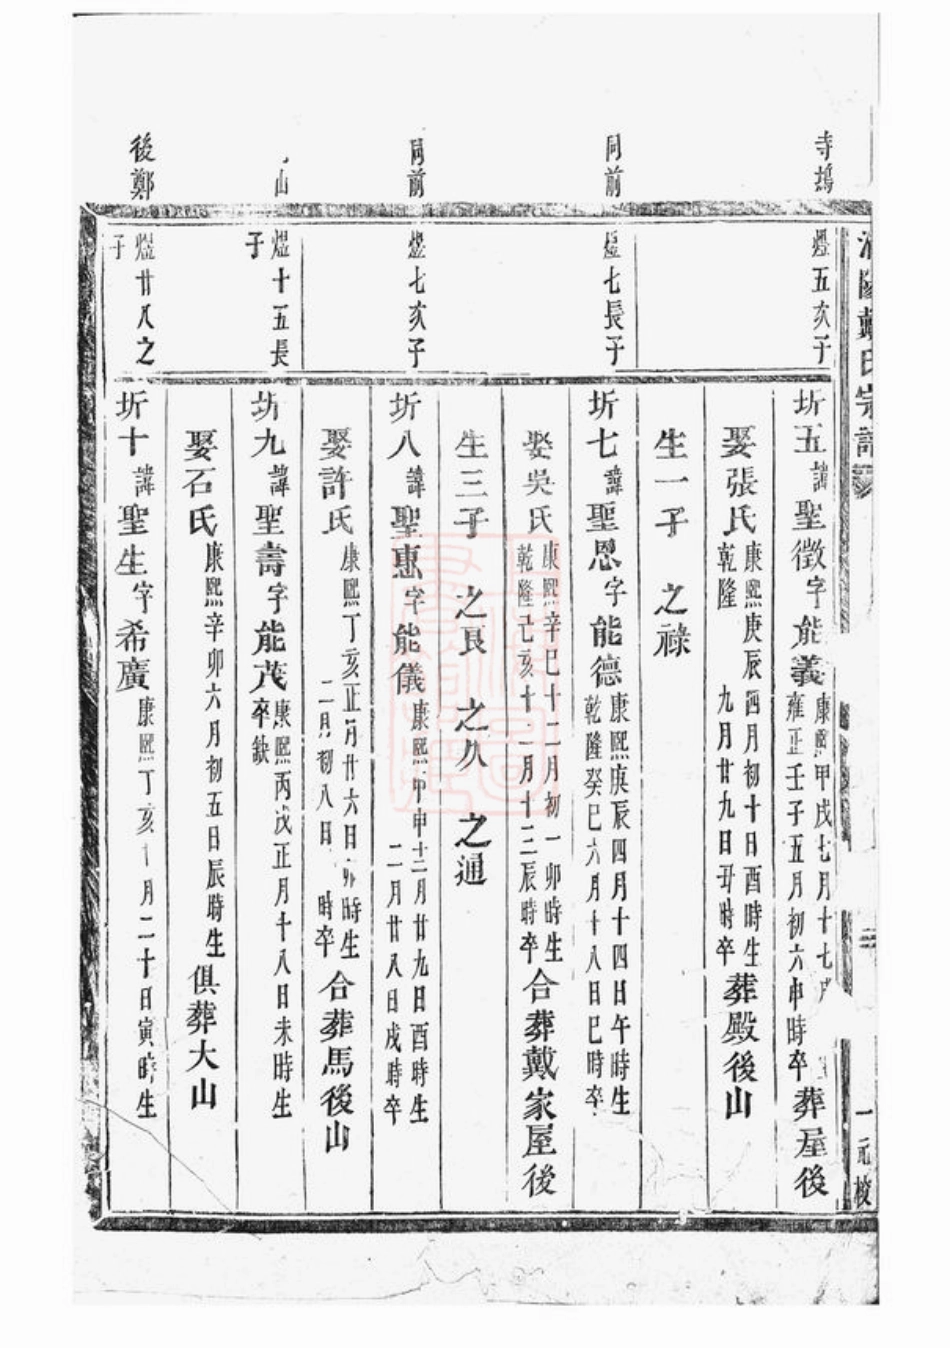 寺塢
煜五次子
圻五諱聖徵字能義康熙甲戌七月十七
雍正壬子五月初六申時卒葬屋後
娶張氏康熙庚辰四月初十日酉時生
乾隆 九月廿九日丑時卒葬殿後山
生一子 之祿
同前
煜七長子
圻七諱聖恩字能德康熙庚辰四月十四日午時生
乾隆癸巳六月十八日巳時卒
娶吳氏康熙辛巳十二月初一卯時生
乾隆己亥十一月十三辰時卒合葬戴家屋後
生三子 之良 之久 之通
同前
煜七次子
圻八諱聖惠字能儀康熙甲申十二月廿九日酉時生
二月廿八日戌時卒
娶許氏康熙丁亥正月廿六日卯時生
二月初八日 時卒合葬馬後山
山
煜十五長子
圻九諱聖壽字能茂康熙丙戌正月十八日未時生
卒缺
娶石氏康熙辛卯六月初五日辰時生俱葬大山
後鄭
煜廿八之子
圻十諱聖生字希廣康熙丁亥十月二十日寅時生
氏宗譜
二
一元校